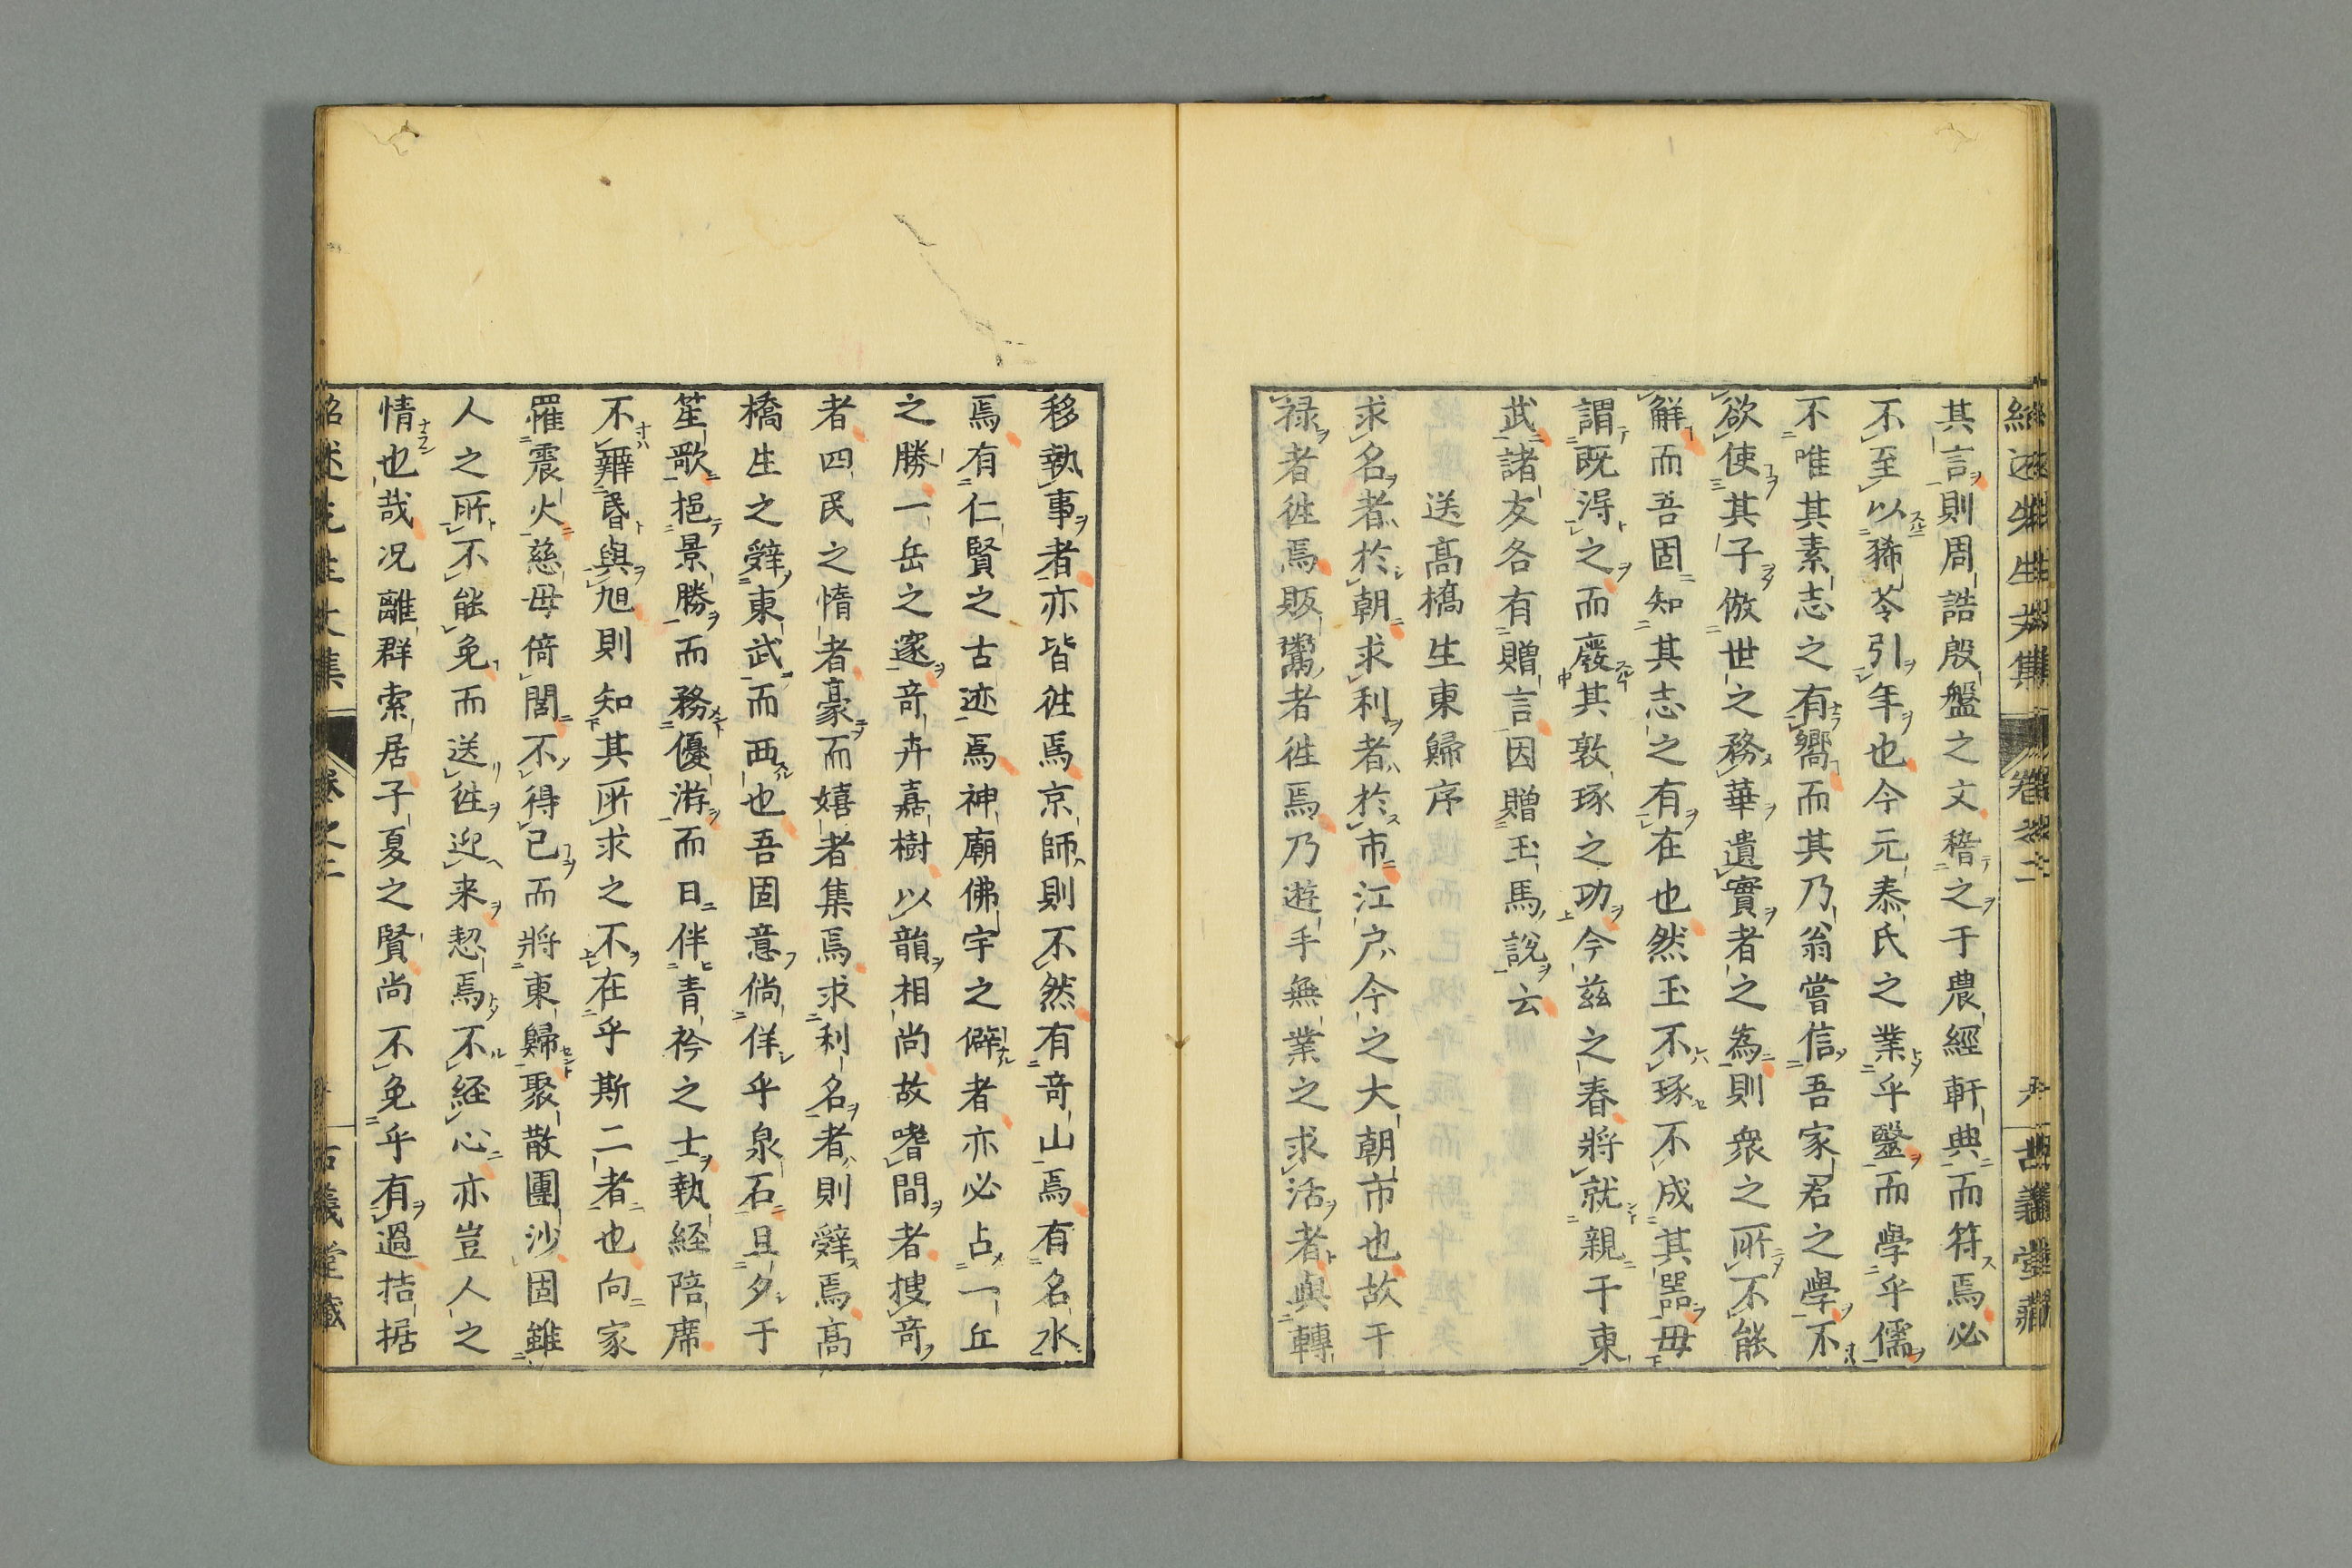 其言則周誥殷盤之文稽之于農經軒典而符焉必
不至以豨苓引年也今元泰氏之業乎毉而學乎儒
不唯其素志之有嚮而其乃翁嘗信吾家君之學不
欲使其子倣世之務華遺實者之為則衆之所不能
解而吾固知其志之有在也然玉不琢不成其器毋
謂既淂之而廢其敦琢之功今兹之春將就親于東
武諸友各有贈言因贈玉馬說云
送髙橋生東歸序
求名者於朝求利者於市江户今之大朝市也故干
禄者徃焉販鬻者徃焉乃遊手無業之求活者與轉
移執事者亦皆徃焉京師則不然有竒山焉有名水
焉有仁賢之古迹焉神廟佛宇之僻者亦必占一丘
之勝一岳之邃竒卉嘉樹以韻相尚故嗜間者搜竒
者四民之惰者豪而嬉者集焉求利名者則辭焉髙
橋生之辭東武而西也吾固意倘佯乎泉石旦夕于
笙歌挹景勝而務優游而日伴青衿之士執経陪席
不辨昏與旭則知其所求之不在乎斯二者也向家
罹震火慈母倚閭不得已而將東歸聚散團沙固雖
人之所不能免而送徃迎来恝焉不経心亦豈人之
情也哉况離群索居子夏之賢尚不免乎有過拮据
紹述先生文集 卷之二 古義堂藏